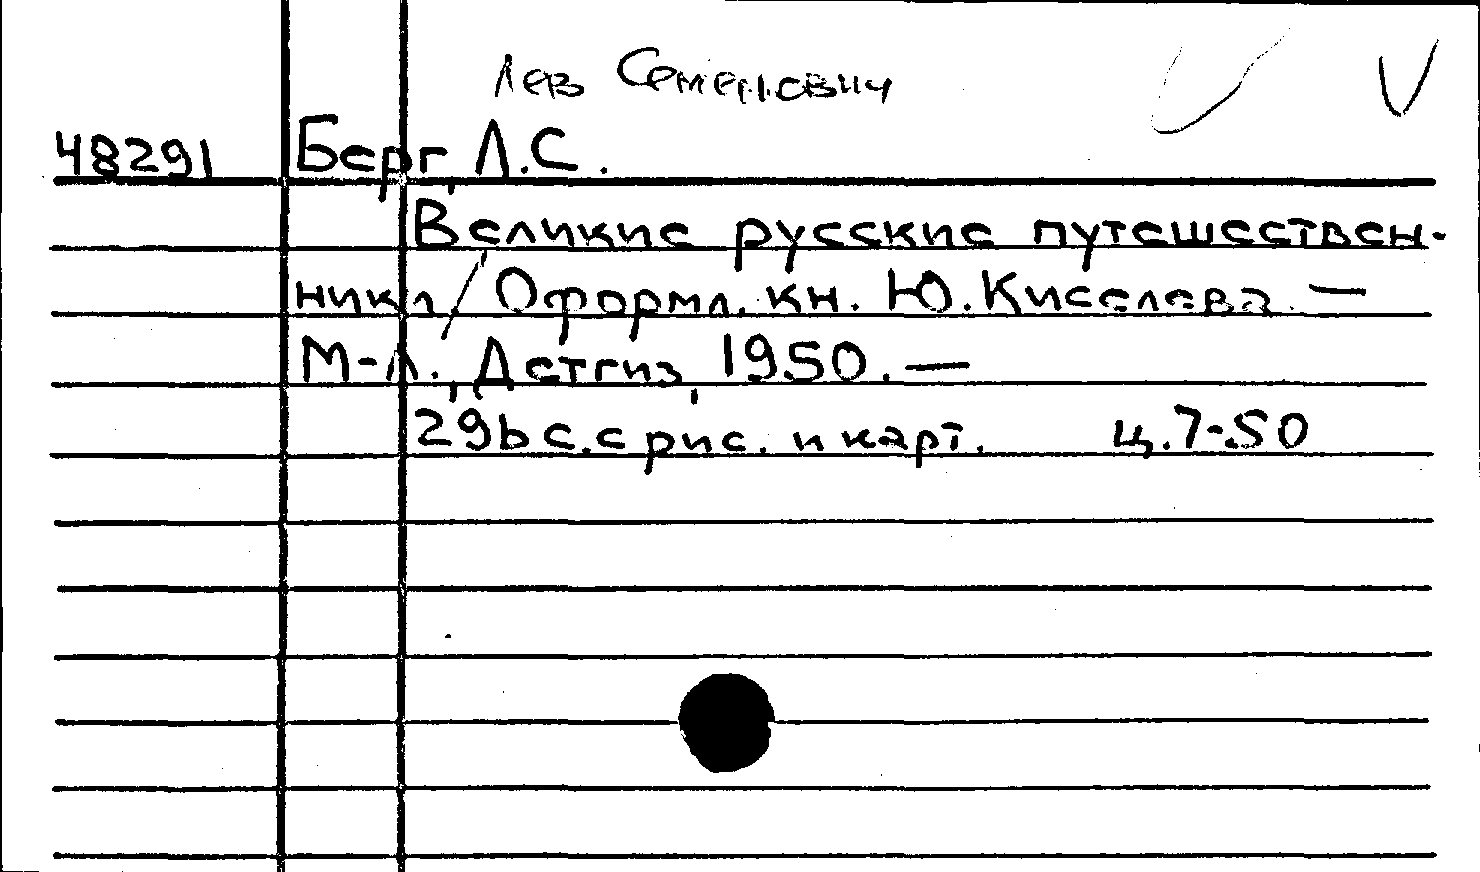 Лев Семенович
48291 Берг, Л.С.
Великие русские путешествен-
ники / Оформл. кн. Ю. Киселева. —
М-Л., Детгиз, 1950. —
296 с. с рис. и карт. ц. 7-50